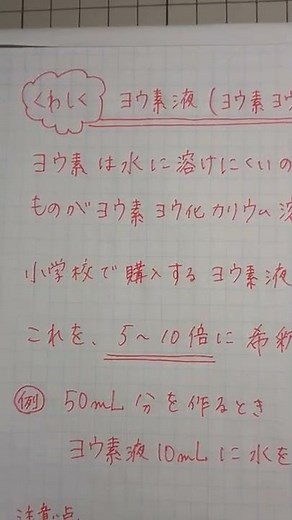 くわしく ヨウ素液(ヨウ素ヨウ
ヨウ素は水に溶けにくいの
ものがヨウ素ヨウ化カリウム溶
小学校で購入するヨウ素液
これを、5~10倍に希釈
例 50mL分を作るとき
ヨウ素液10mLに水を
注意点